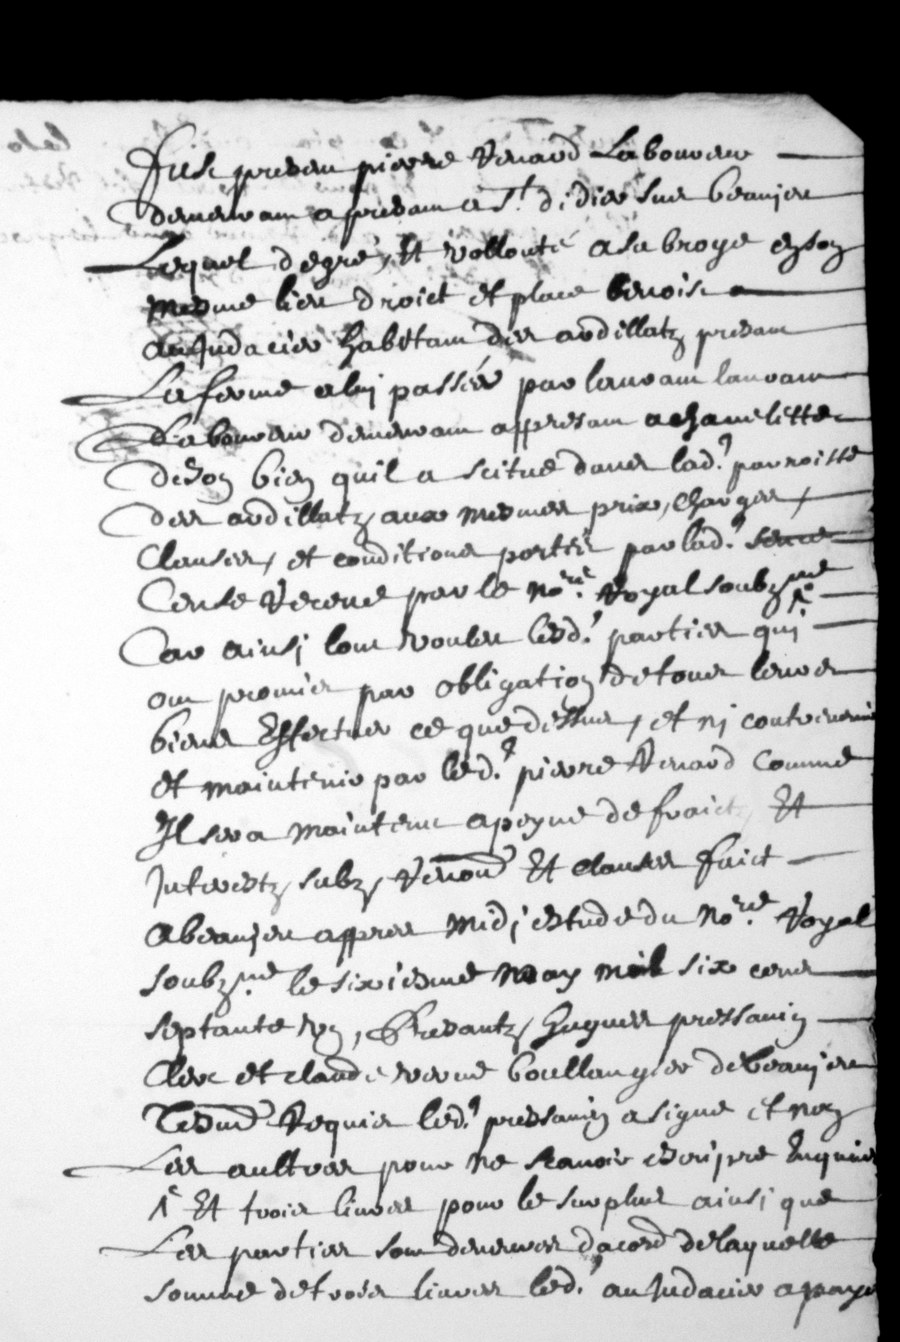 Fust presen pierre Renard Laboureur
demeuran a presen a St. didier sur beaujeu
Lequel de gre, Et vollonté a subroge en son
mesme lieu droict et place benoist
aujudacier habitant des ardillatz presan
La ferme a luy passée par lauran
Laboureur demeuran appresan a chamelitte
de son bien quil a scitué dans lad. parroisse
des ardillatz aux mesmes prix, charges,
Clauses, et conditions porttés par lad.
Cense receue par le nore. Royal soubzne
Car ainsi lont voulu lesd. parties qui
ont promis par obligation de tous leurs
biens Effectuer ce que dessus, et ni contrevenir
et maintenir par led. pierre Renard Comme
Il sera maintenu a peyne de fraictz Et
Interestz, subz, Renon Et clauses faict
a beaujeu appres midi estude du Nore. Royal
soubzne. le sixiesme may mil six cens
septante un, Presantz, hugues pressavin
Clerc et claude verne boullangier de beaujeu
Tesm Requis led. pressavin a signe et non
Les aultres pour ne scavoir escripre Enquis
Et trois livres pour le surplus ainsi que
Les parties sont demeures dacord de laquelle
somme de trois livres led. aujudacier a paye